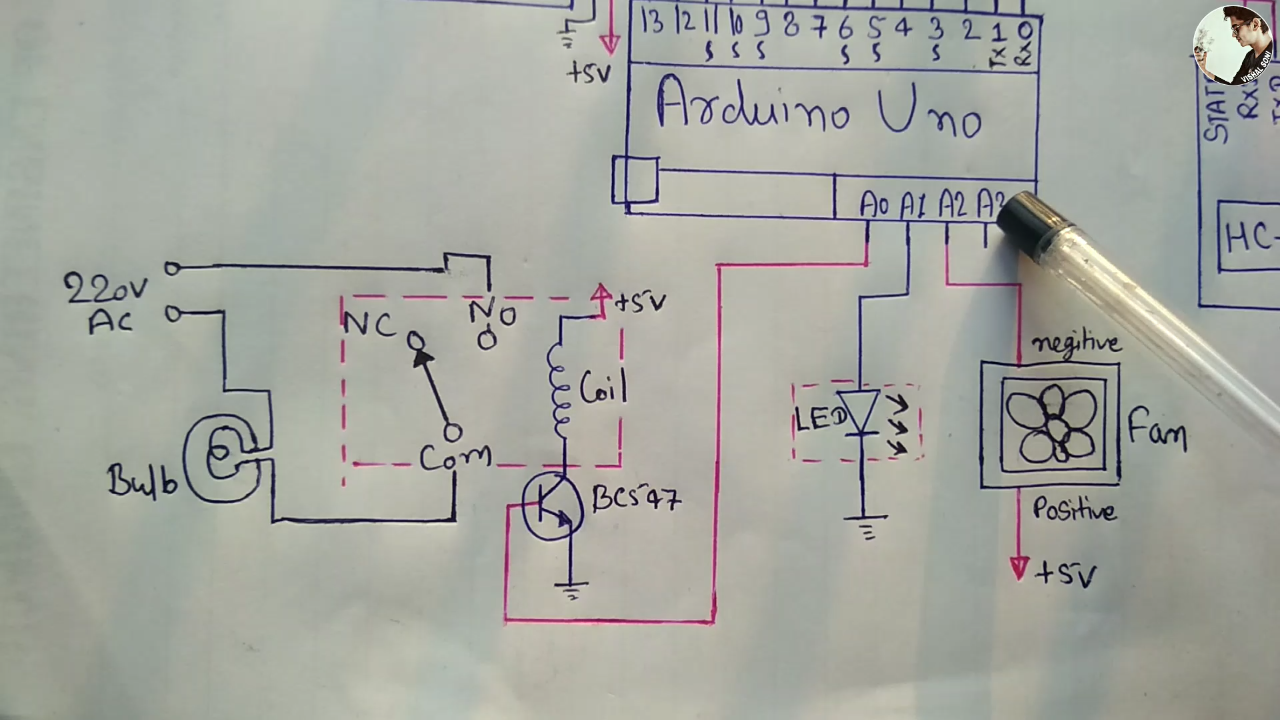 13 12 11 10 9 8 7 6 5 4 3 2 1 0
s s s s s s Tx Rx
+5V
Arduino Uno
A0 A1 A2
STAT
HC-
VISHAL SONI
220V
AC
NC
NO
+5V
Coil
Com
Bulb
BC547
LED
negitive
Fan
Positive
+5V